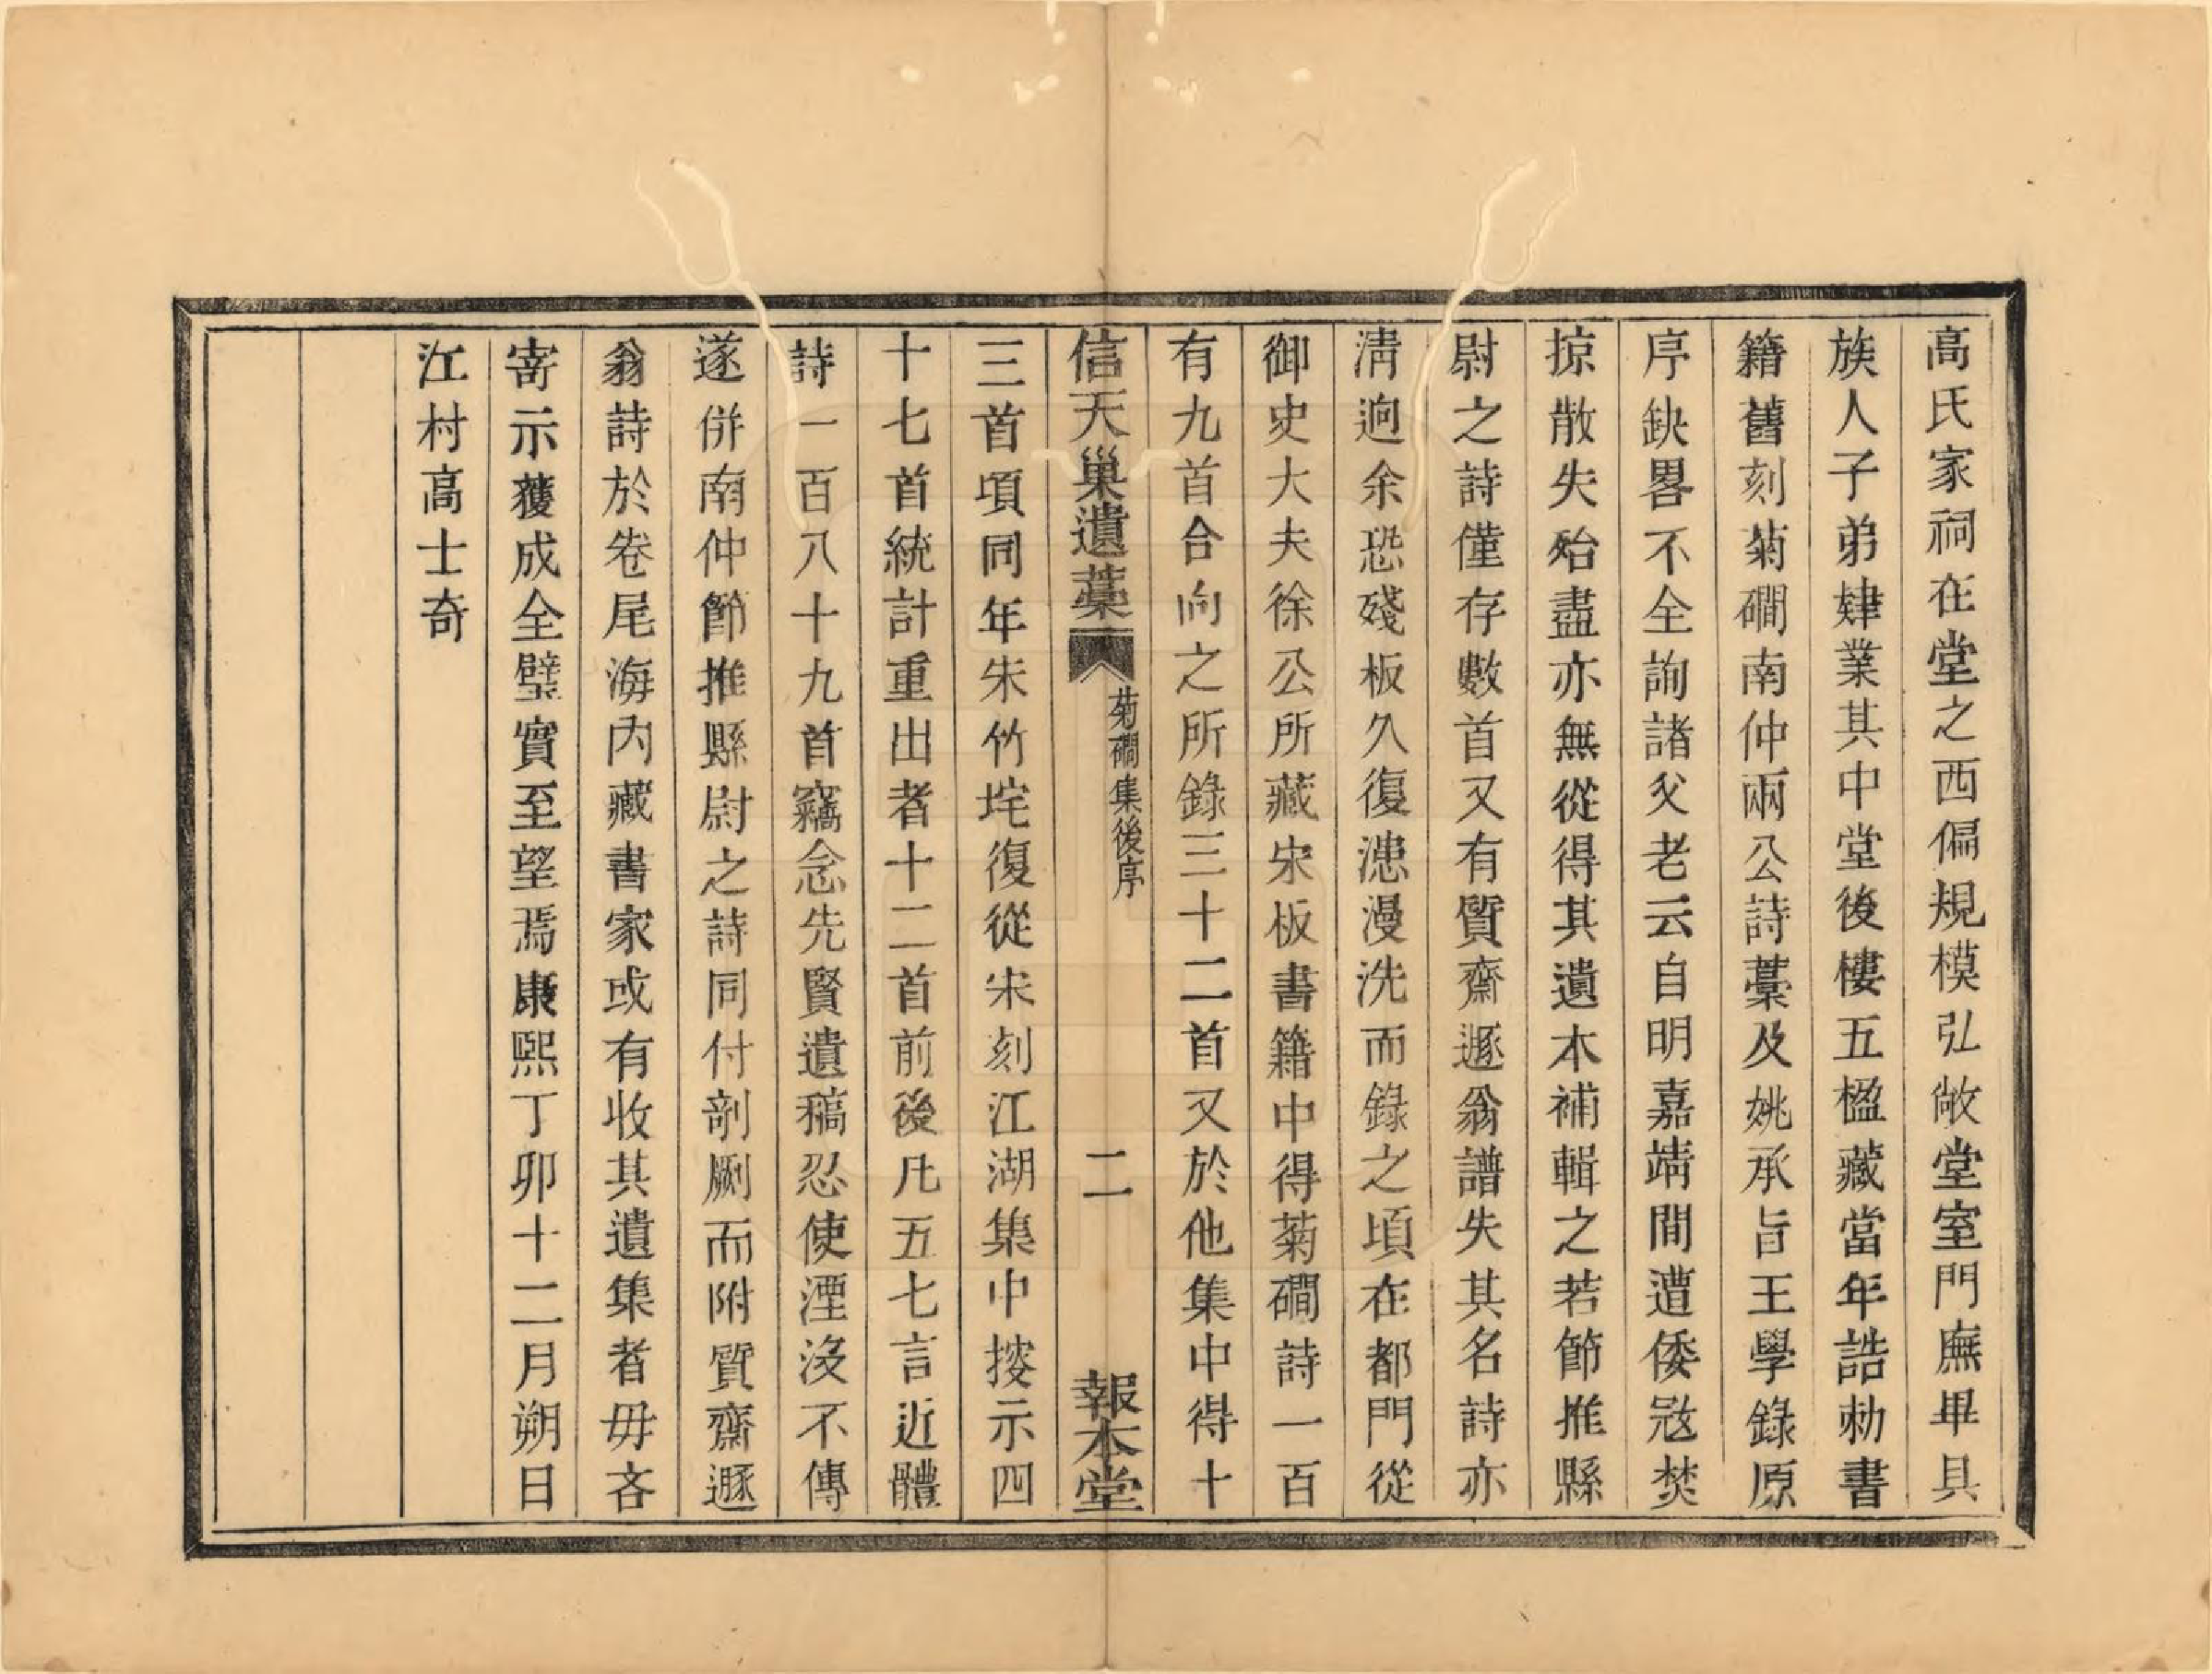 高氏家祠在堂之西偏規模弘敞堂室門廡畢具
族人子弟肄業其中堂後樓五楹藏當年誥勅書
籍舊刻菊磵南仲兩公詩藁及姚承旨王學錄原
序缺畧不全詢諸父老云自明嘉靖間遭倭宼焚
掠散失殆盡亦無從得其遺本補輯之若節推縣
尉之詩僅存數首又有質齋遯翁譜失其名詩亦
淸逈余恐殘板久復漶漫洗而錄之頃在都門從
御史大夫徐公所藏宋板書籍中得菊磵詩一百
有九首合向之所錄三十二首又於他集中得十
信天巢遺藁
菊磵集後序
二
報本堂
三首頃同年朱竹垞復從宋刻江湖集中按示四
十七首統計重出者十二首前後凡五七言近體
詩一百八十九首竊念先賢遺稿忍使湮沒不傳
遂併南仲節推縣尉之詩同付剞劂而附質齋遯
翁詩於卷尾海內藏書家或有收其遺集者毋吝
寄示獲成全璧實至望焉康熙丁卯十二月朔日
江村高士奇